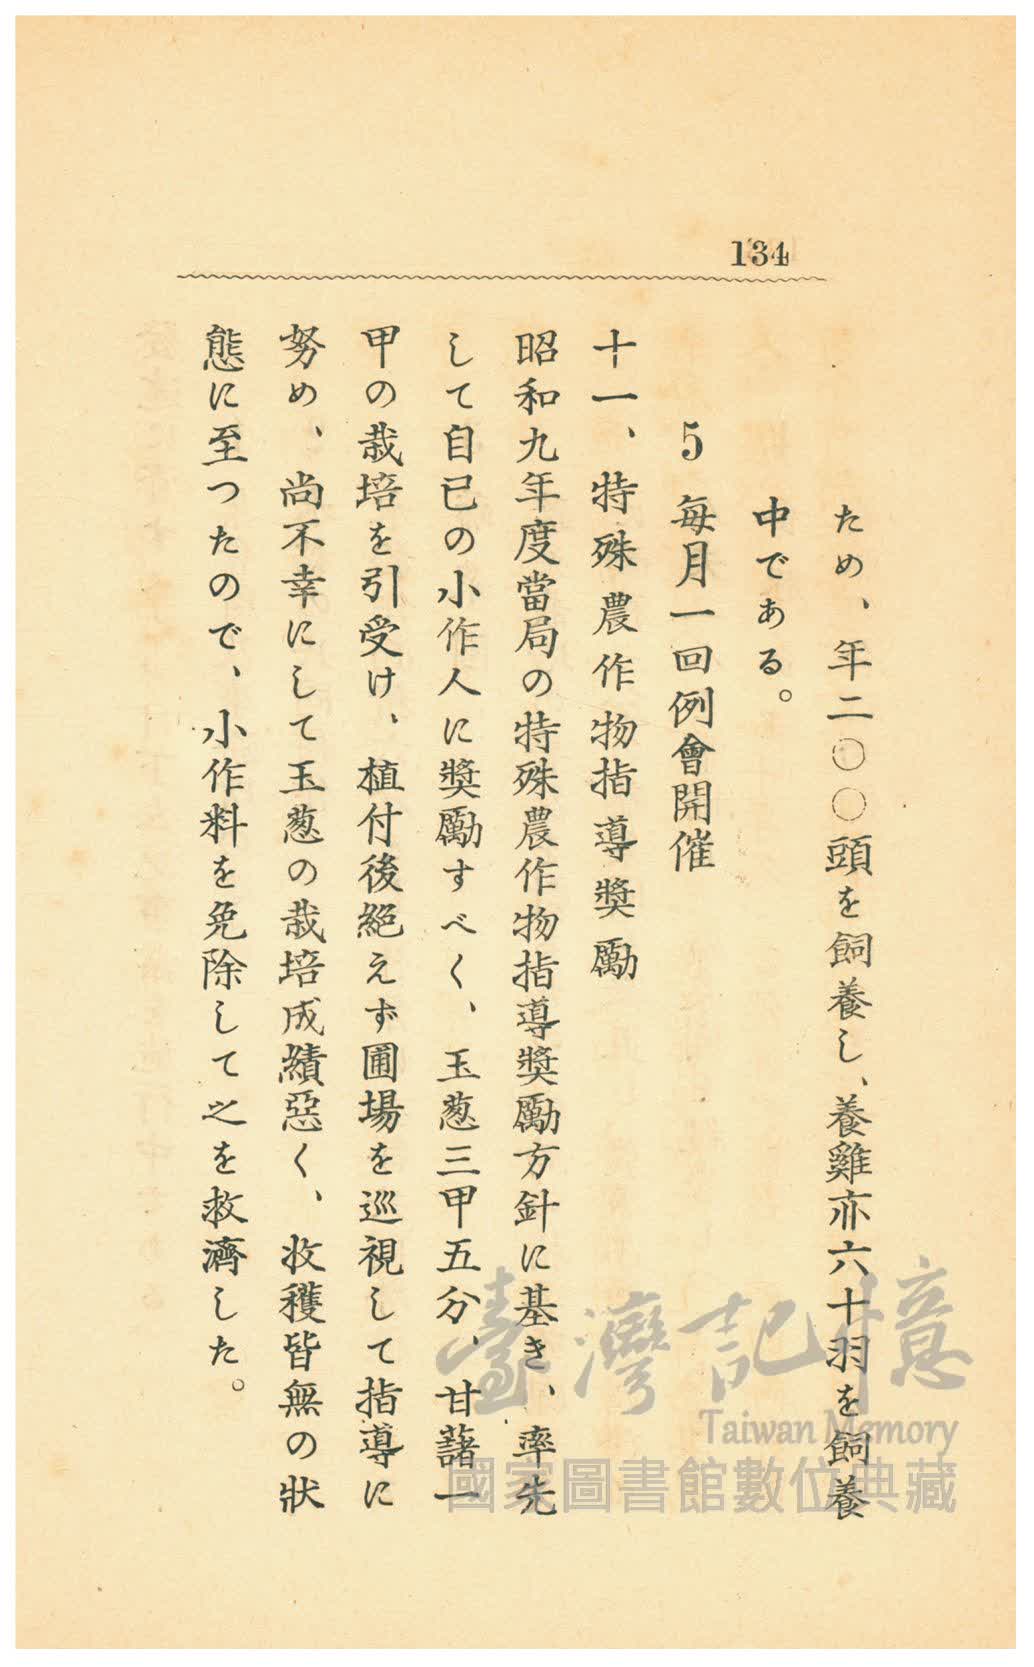 134
ため、年二〇〇頭を飼養し、養雞亦六十羽を飼養
中である。
5 每月一回例會開催
十一、特殊農作物指導獎勵
昭和九年度當局の特殊農作物指導獎勵方針に基き、率先
して自已の小作人に獎勵すべく、玉葱三甲五分、甘藷一
甲の栽培を引受け、植付後絕えず圃場を巡視して指導に
努め、尚不幸にして玉葱の栽培成績惡く、收穫皆無の狀
態に至つたので、小作料を免除して之を救濟した。
臺灣記憶
Taiwan Memory
國家圖書館數位典藏